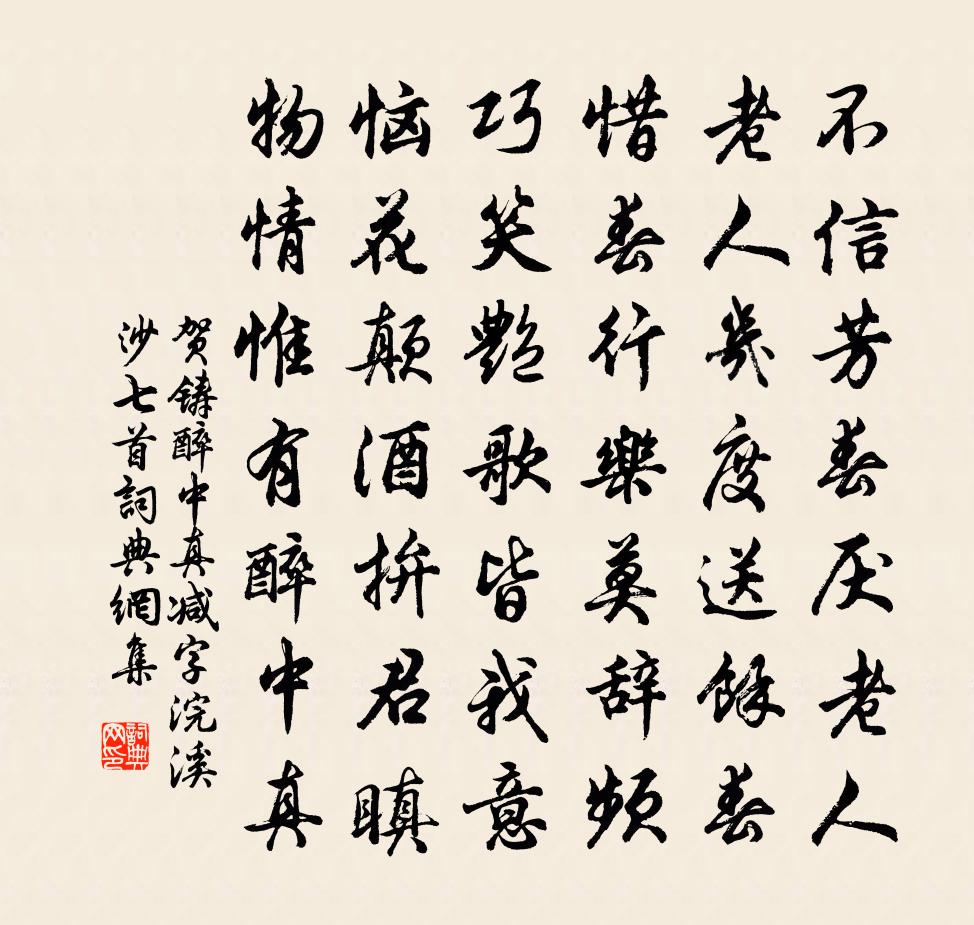 不信芳春厌老人
老人幾度送餘春
惜春行樂莫辞頻
巧笑艷歌皆我意
恼花颠酒拚君瞋
物情惟有醉中真
贺鑄醉中真减字浣溪
沙七首詞典網集
詞典网印